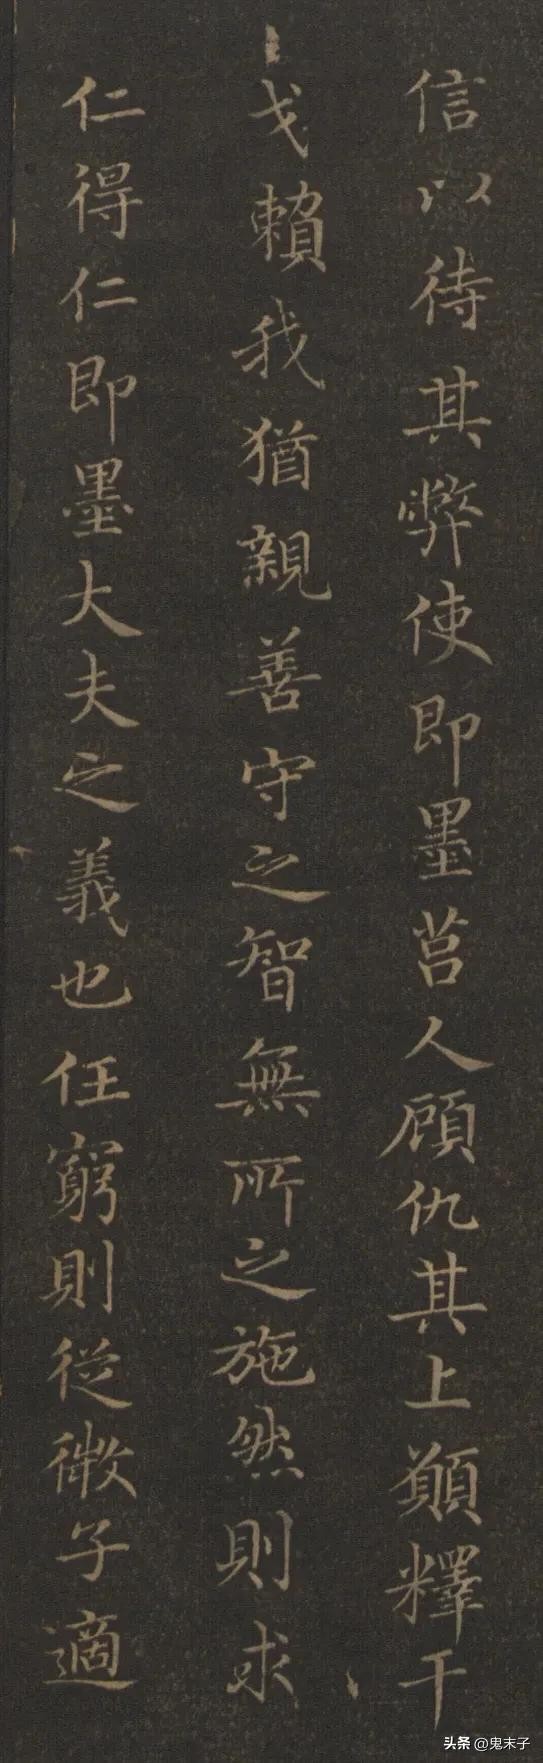 信以待其弊使即墨莒人顧仇其上願釋干
戈賴我猶親善守之智無所之施然則求
仁得仁即墨大夫之義也任窮則從微子適
头条 @鬼末子